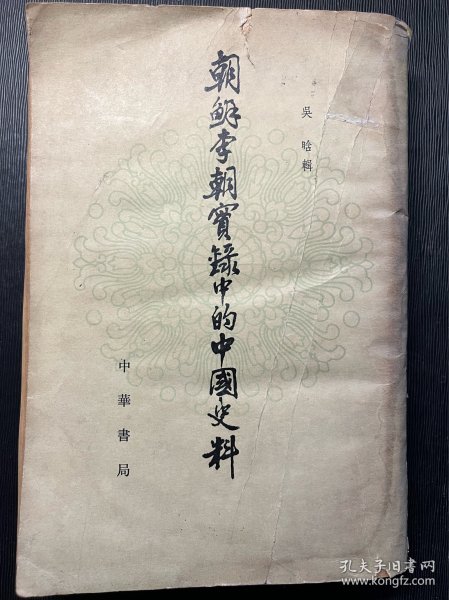 吳晗輯
朝鮮李朝實錄中的中國史料
中華書局
孔夫子旧书网
www.kongfz.com